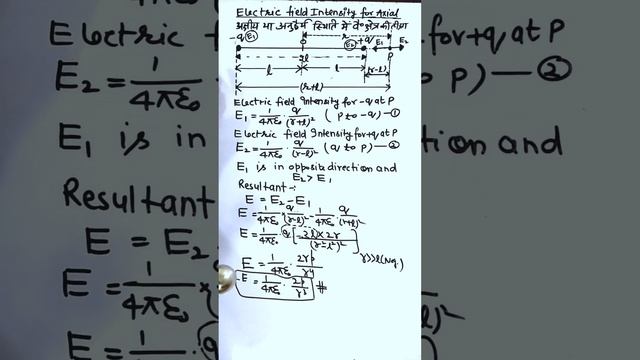 Electric field Intensity for Axial
अक्षीय या अनुदैर्ध्य स्थिति में
-q E₁ O r E₂ +q E₁ E₂
2l P
l l (r-l)
(r+l)
Electric field Intensity for -q at P
E₁ = 1/4πε₀ · q/(r+l)² (P to -q) —①
Electric field Intensity for +q at P
E₂ = 1/4πε₀ · q/(r-l)² (q to P) —②
E₁ is in opposite direction and
E₂ > E₁
Resultant -:
E = E₂ - E₁
E = 1/4πε₀ × q/(r-l)² - 1/4πε₀ · q/(r+l)²
E = 1/4πε₀ · q [2l × 2r/(r²-l²)²]
r>>l (neg.)
E = 1/4πε₀ · 2rp/r⁴
E = 1/4πε₀ · 2p/r³ #
Electric
for +q at P
E₂ = 1/4πε₀
P) —②
E₁ is in
tion and
Resultant
E = E₂
E = 1/4πε₀